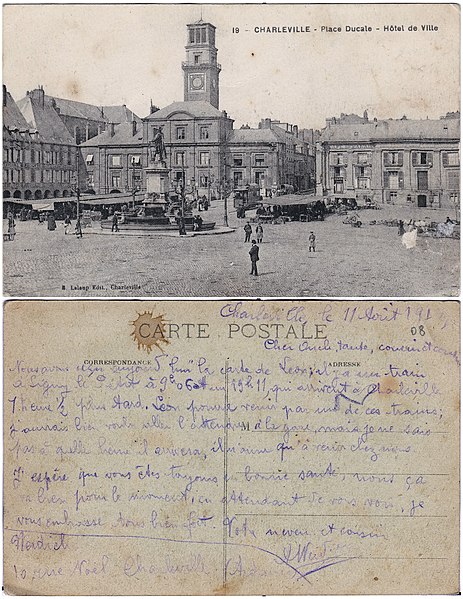 19 - CHARLEVILLE - Place Ducale - Hôtel de Ville
B. Leloup Edit., Charleville
Charleville, le 11 Août 191
08
CARTE POSTALE
Cher Oncle, tante, cousin et
CORRESPONDANCE
ADRESSE
Nous avons aujourd'hui la carte de Léon; il y a un train
à Signy le Petit à 9h06 et un 19h11, qui arrivent à Charleville
1 heure ½ plus tard. Léon pourra venir par un de ces trains;
j'aurais bien voulu aller l'attendre à la gare, mais je ne sais
pas à quelle heure il arrivera, il n'aura qu'à venir chez nous.
J'espère que vous êtes toujours en bonne santé, nous ça
va bien pour le moment, en attendant de vous voir, je
vous embrasse tous bien fort. Votre neveu et cousin
10, rue Noël, Charleville